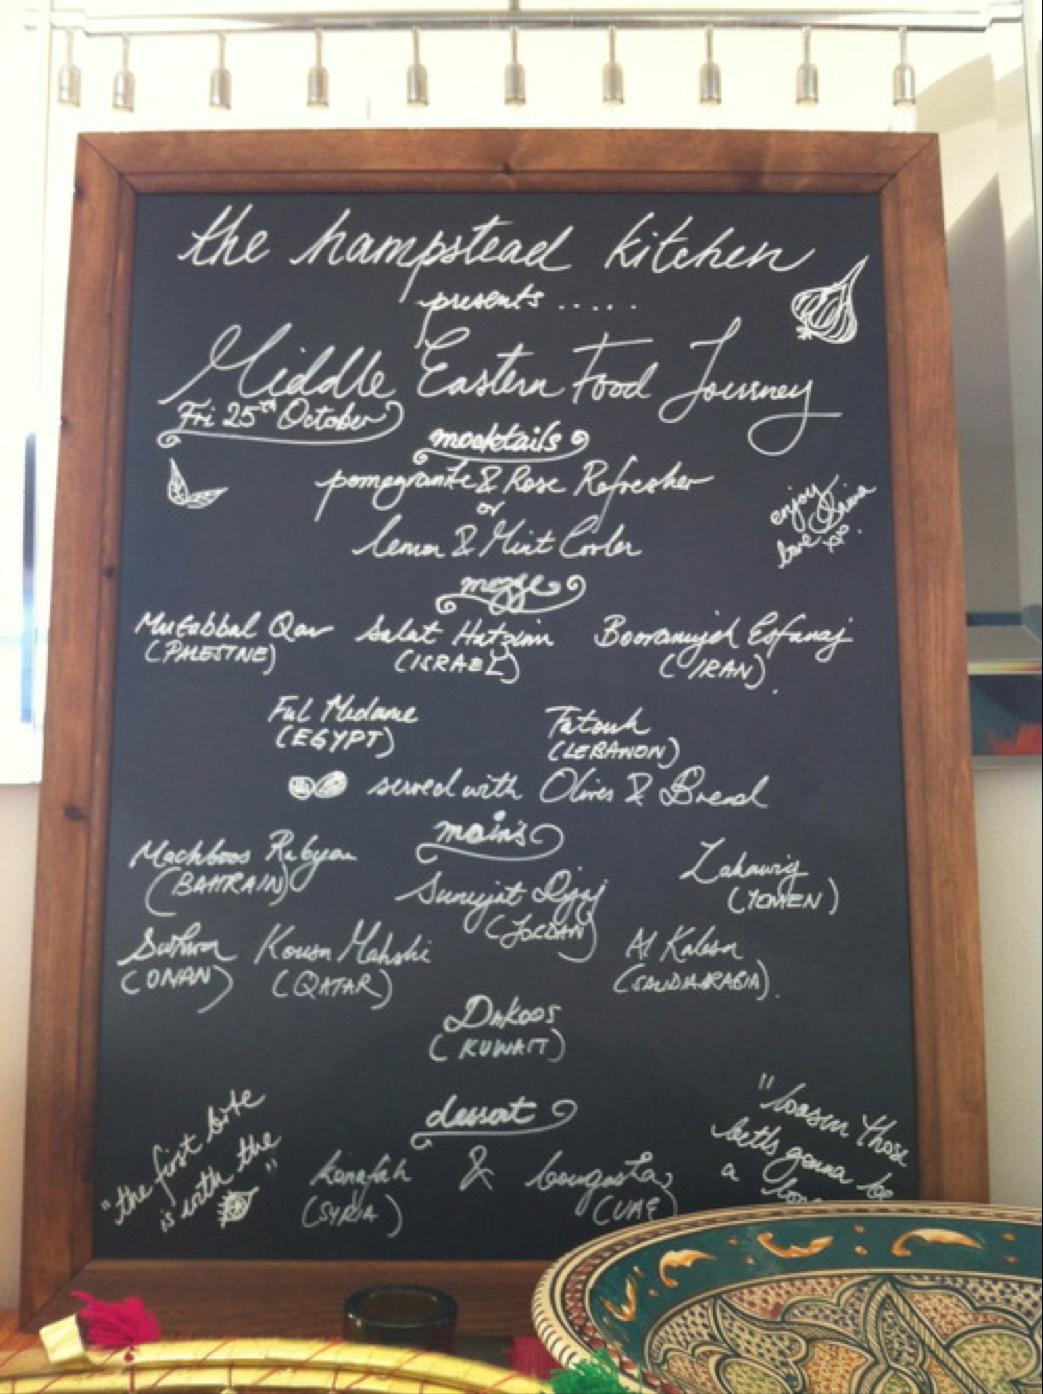 the hampstead kitchen
presents .....
Middle Eastern Food Journey
Fri 25th October
mocktails
pomegranite & Rose Refresher
or
Lemon & Mint Cooler
enjoy
love
xx
mezze
Mutabbal Qar Salat Hatzim Booraniyeh Esfanaj
(PALESTINE) (ISRAEL) (IRAN)
Ful Medame Fatoush
(EGYPT) (LEBANON)
served with Olives & Bread
mains
Machboos Rubyan
(BAHRAIN)
Zahawig
(YOMEN)
Suniyat Djaj
(JORDAN)
Kousa Mahshi
(ONAN) (QATAR)
Al Kabsa
(SAUDI ARABIA)
Dakoos
(KUWAIT)
dessert
konafah & bougasta
(SYRIA) (UAE)
"the first bite
is with the "
"loosen those
belts gonna be
a